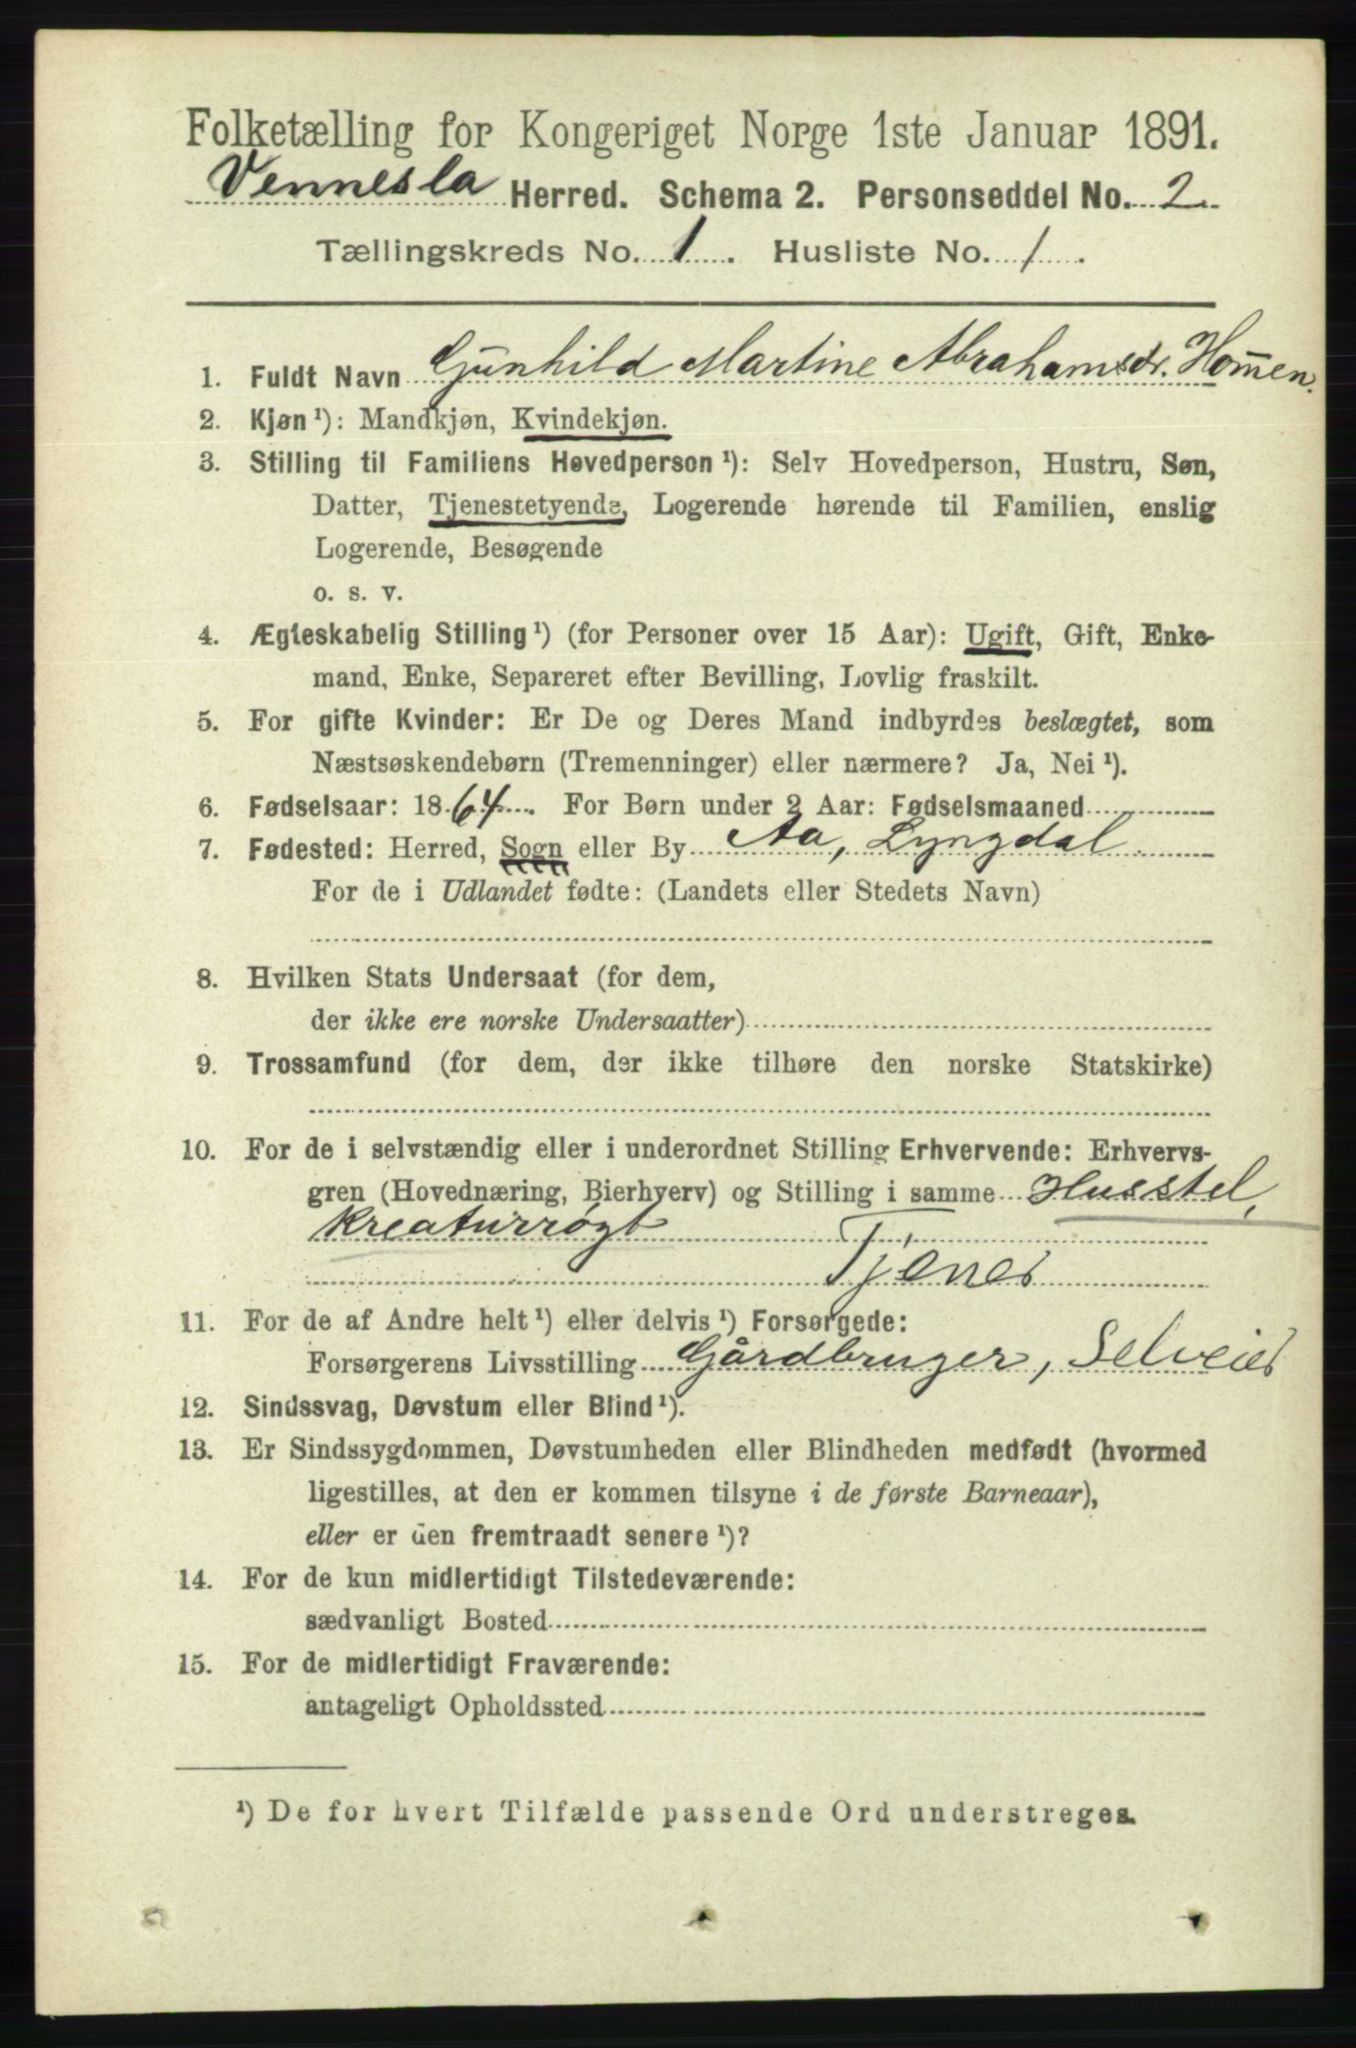 Folketælling for Kongeriget Norge 1ste Januar 1891.
Vennesla Herred. Schema 2. Personseddel No. 2
Tællingskreds No. 1. Husliste No. 1.
1. Fuldt Navn Gunhild Martine Abrahamsdr. Hom̅en.
2. Kjøn ¹): Mandkjøn, Kvindekjøn.
3. Stilling til Familiens Hovedperson ¹): Selv Hovedperson, Hustru, Søn,
Datter, Tjenestetyende, Logerende hørende til Familien, enslig
Logerende, Besøgende
o. s. v.
4. Ægteskabelig Stilling ¹) (for Personer over 15 Aar): Ugift, Gift, Enke-
mand, Enke, Separeret efter Bevilling, Lovlig fraskilt.
5. For gifte Kvinder: Er De og Deres Mand indbyrdes beslægtet, som
Næstsøskendebørn (Tremenninger) eller nærmere? Ja, Nei ¹).
6. Fødselsaar: 1864. For Børn under 2 Aar: Fødselsmaaned
7. Fødested: Herred, Sogn eller By Aa, Lyngdal
For de i Udlandet fødte: (Landets eller Stedets Navn)
8. Hvilken Stats Undersaat (for dem,
der ikke ere norske Undersaatter)
9. Trossamfund (for dem, der ikke tilhøre den norske Statskirke)
10. For de i selvstændig eller i underordnet Stilling Erhvervende: Erhvervs-
gren (Hovednæring, Bierhverv) og Stilling i samme Husstel,
kreaturrøgt
Tjener
11. For de af Andre helt ¹) eller delvis ¹) Forsørgede:
Forsørgerens Livsstilling Gårdbruger, Selveier
12. Sindssvag, Døvstum eller Blind ¹).
13. Er Sindssygdommen, Døvstumheden eller Blindheden medfødt (hvormed
ligestilles, at den er kommen tilsyne i de første Barneaar),
eller er den fremtraadt senere ¹)?
14. For de kun midlertidigt Tilstedeværende:
sædvanligt Bosted
15. For de midlertidigt Fraværende:
antageligt Opholdssted
¹) De for hvert Tilfælde passende Ord understreges.